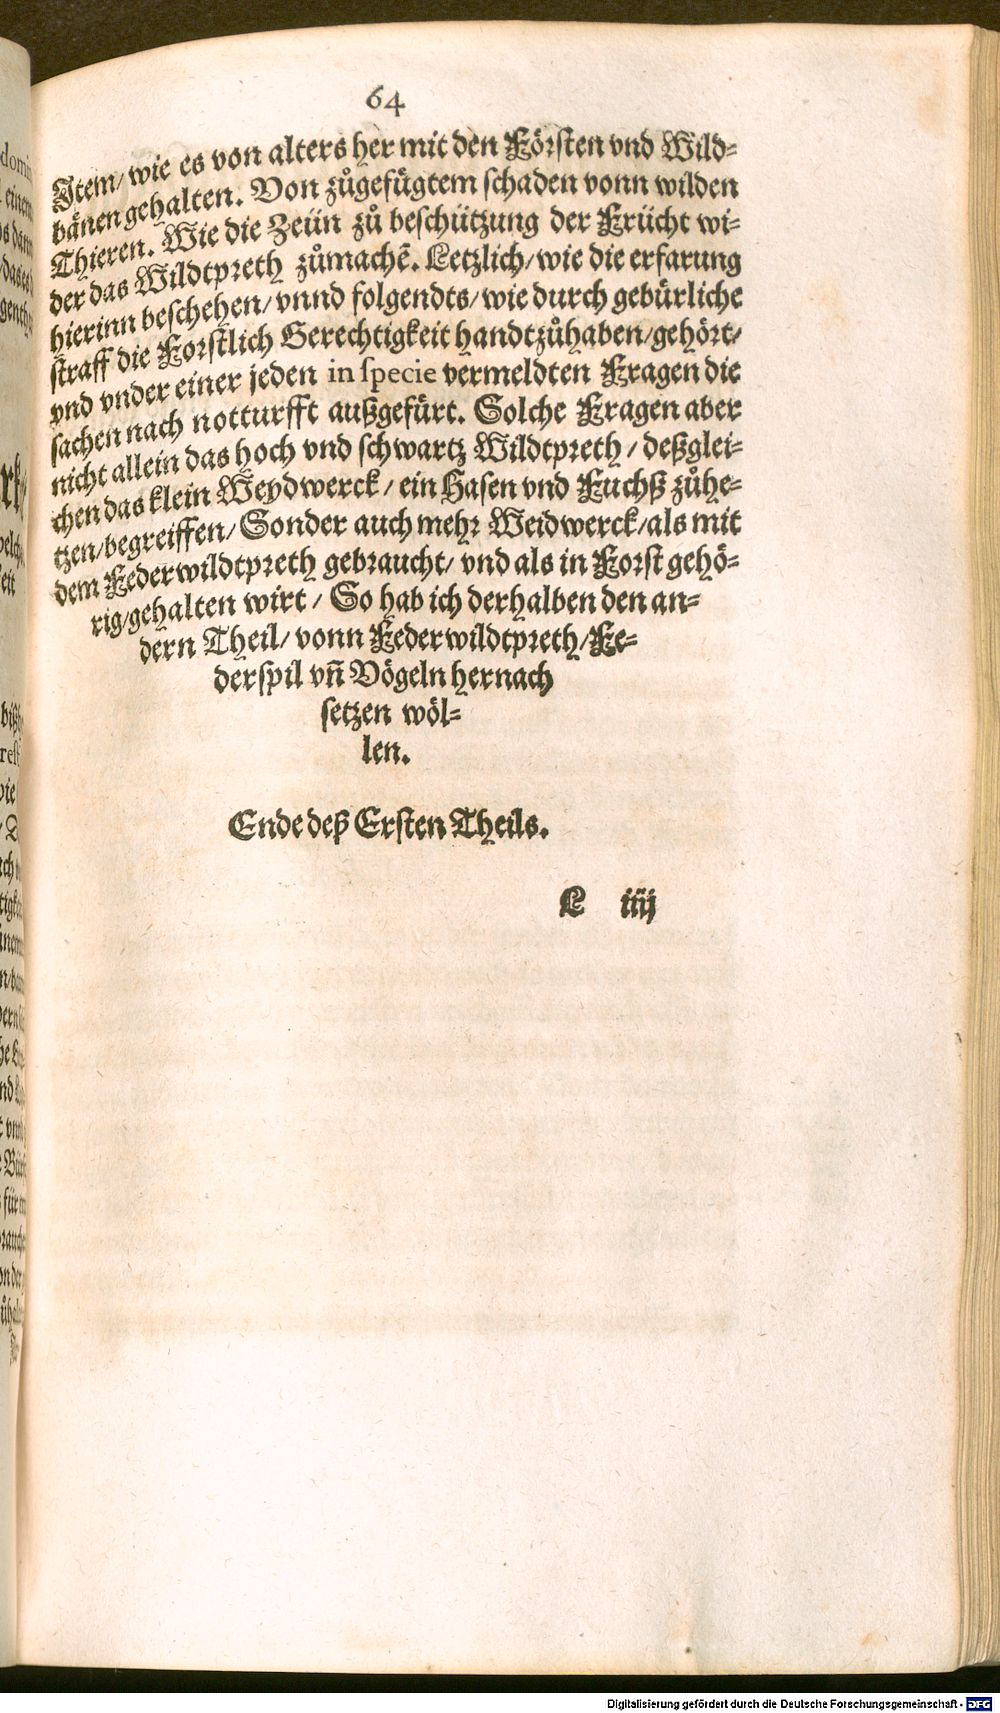 64
Item/ wie es von alters her mit den Försten vnd Wild-
bänen gehalten. Von zůgefügtem schaden vonn wilden
Thieren. Wie die Zeün zů beschützung der Frücht wi-
der das Wildtpreth zůmachẽ. Letzlich/ wie die erfarung
hierinn beschehen/ vnnd folgendts/ wie durch gebürliche
straff die Forstlich Gerechtigkeit handtzůhaben/ gehört/
vnd vnder einer jeden in specie vermeldten Fragen die
sachen nach notturfft außgefürt. Solche Fragen aber
nicht allein das hoch vnd schwartz Wildtpreth / deßglei-
chen das klein Weydwerck/ ein Hasen vnd Fuchß zůhe-
tzen/ begreiffen/ Sonder auch mehr Weidwerck/ als mit
dem Federwildtpreth gebraucht/ vnd als in Forst gehö-
rig/ gehalten wirt / So hab ich derhalben den an-
dern Theil/ vonn Federwildtpreth/ Fe-
derspil vñ Vögeln hernach
setzen wöl-
len.
Ende deß Ersten Theils.
L iiij
Digitalisierung gefördert durch die Deutsche Forschungsgemeinschaft - DFG